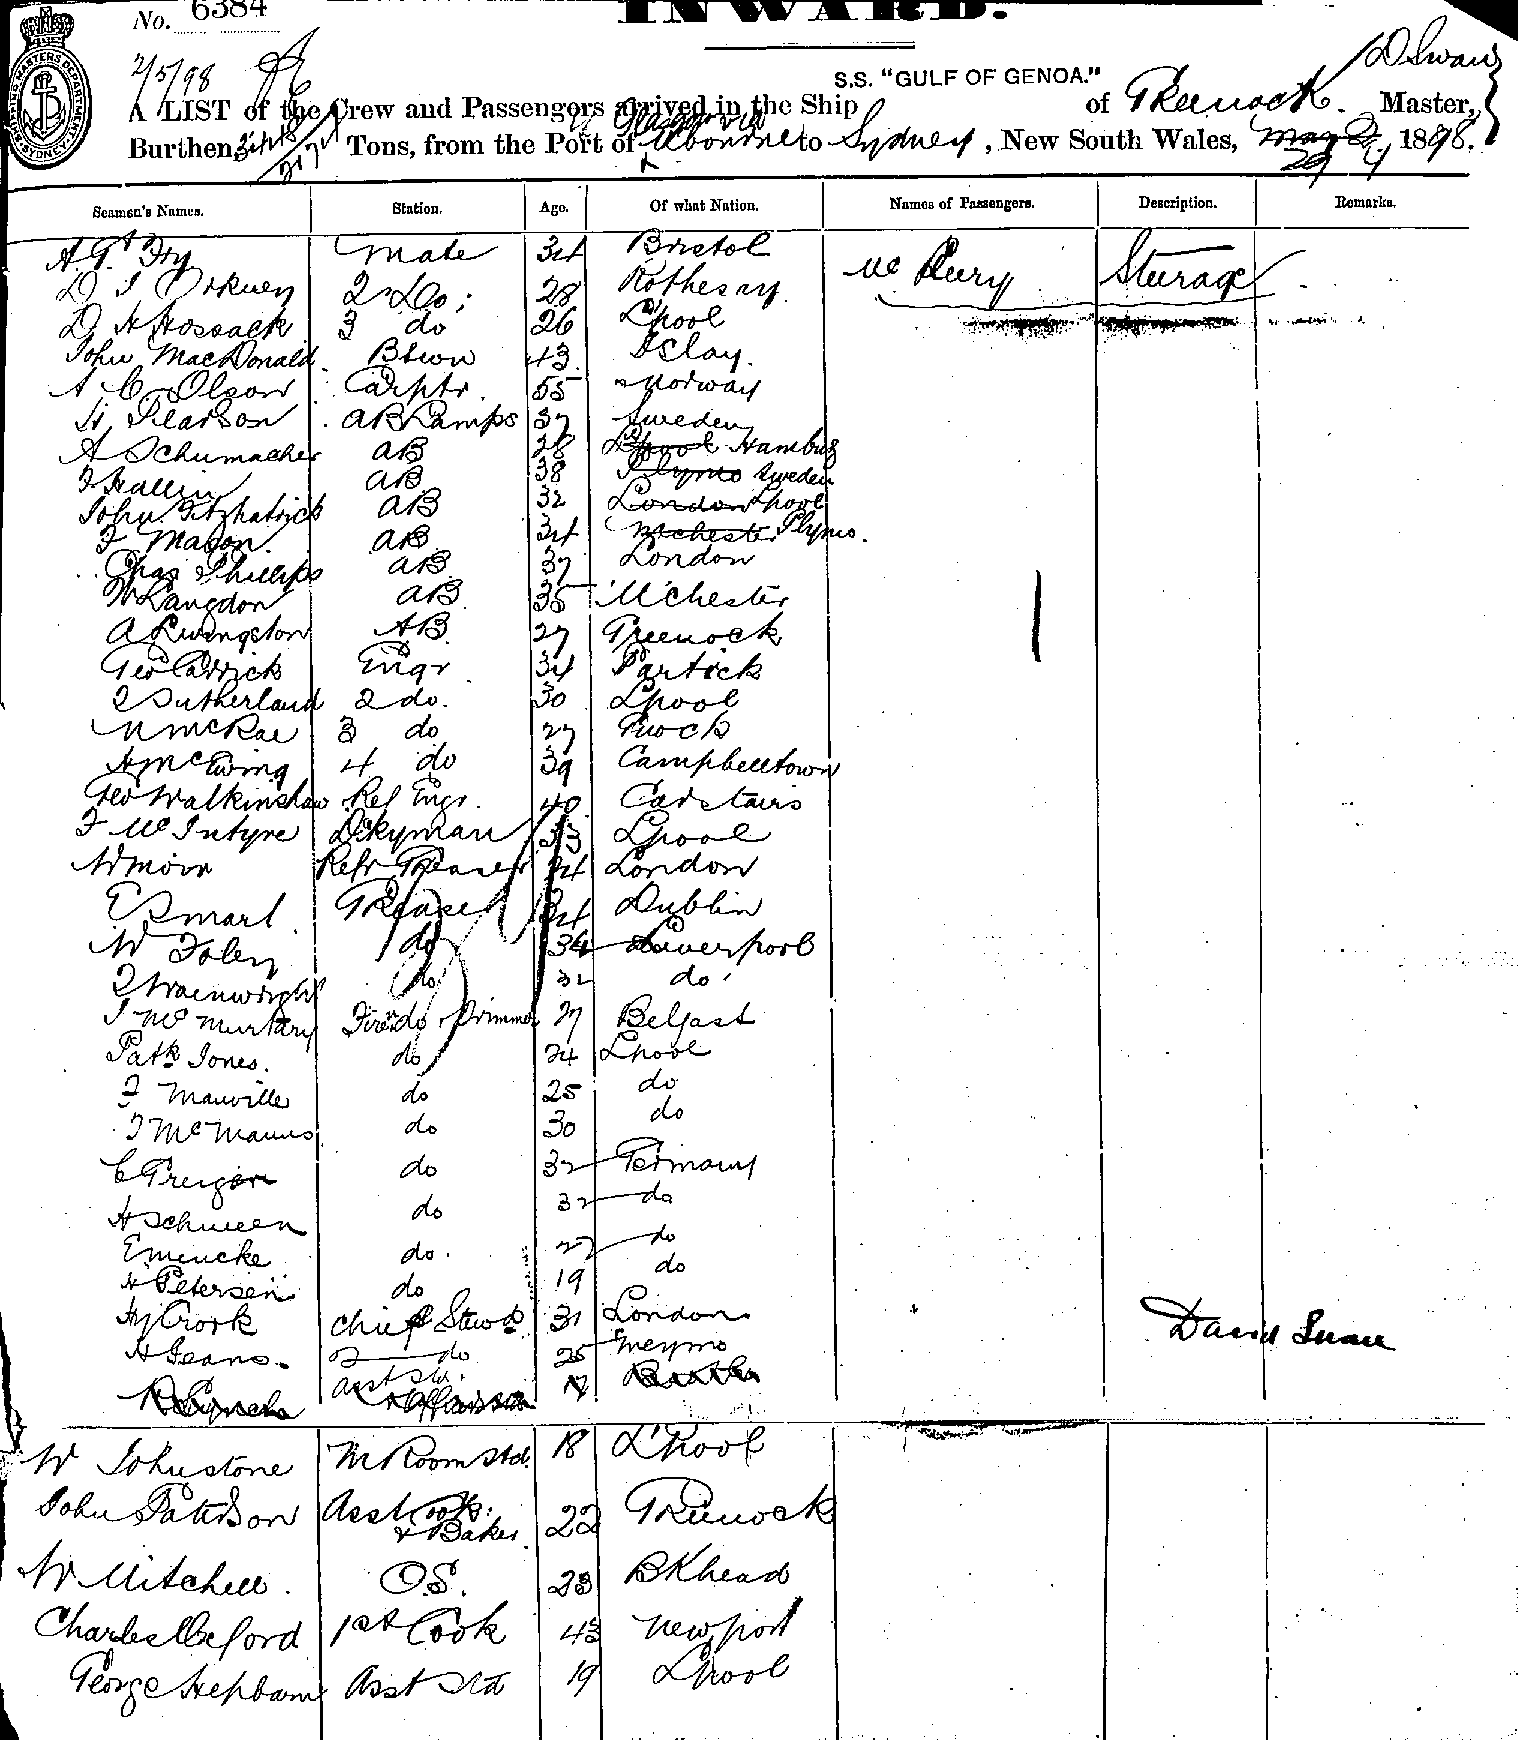 No. 6384
INWARD.
2/5/98
D Swan
S.S. "GULF OF GENOA."
A LIST of the Crew and Passengers arrived in the Ship of Greenock. Master,
Burthen, Tons, from the Port of Glasgow via Melbourne to Sydney, New South Wales, May 2 1898.
29/4
Seamen's Names. Station. Age. Of what Nation. Names of Passengers. Description. Remarks.
A. G. Fry Mate 34 Bristol Mc Creery Steerage
D J Orkney 2 Do; 28 Rothesay
D H Hossack 3 do 26 Lpool
John MacDonald. Btswn 43 Islay.
A C Olson Carptr. 55 Norway
H Pearson AB Lamps 37 Sweden
A Schumacher AB 28 Lpool Hamburg
F Hallin AB 38 Plymo Sweden
John Fitzpatrick AB 32 London Lpool
F Mason. AB 34 Mchester Plymo.
Chas Phillips AB 37 London
W Langdon AB 35 Mchester
A Livingston AB 27 Greenock
Geo Carrick Engr 34 Partick
J Sutherland 2 do. 30 Lpool
N McRae 3 do 27 Gnock
H McEwing 4 do 39 Campbelltown
Geo Walkinshaw Ref Engr. 40 Carstairs
F McIntyre Dkyman 33 Lpool
W Moir Refr Greaser 24 London
E Smart Greaser 34 Dublin
W Foley do 34 Liverpool
J Wainwright do 32 do
J McMurtary Fireman & Trimmer 27 Belfast
Patk Jones. do 24 Lpool
F Manville do 25 do
J McManus do 30 do
C Greiger do 32 Germany
H Schween do 32 do
E Mencke do. 27 do
H Petersen do 19 do
Hy Crook Chief Stewd 31 London
David Swan
H Jeans. 2 do 25 Weymo
R Lynch Asst Std. 17
W Johnstone M Room Std. 18 L'pool
John Paterson Asst Cook & Baker. 22 Greenock
W Mitchell. O.S. 23 BKhead
Charles Oxford 1st Cook 43 Newport
George Hepburn Asst Std 19 Lpool